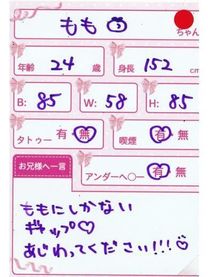 もも
ちゃん
年齢 24 歳
身長 152 cm
B: 85
W: 58
H: 85
タトゥー 有 無
喫煙 有 無
お兄様へ一言
アンダーへ○ー 有 無
ももにしかない
ギャップ♡
あじわってください!!!♡